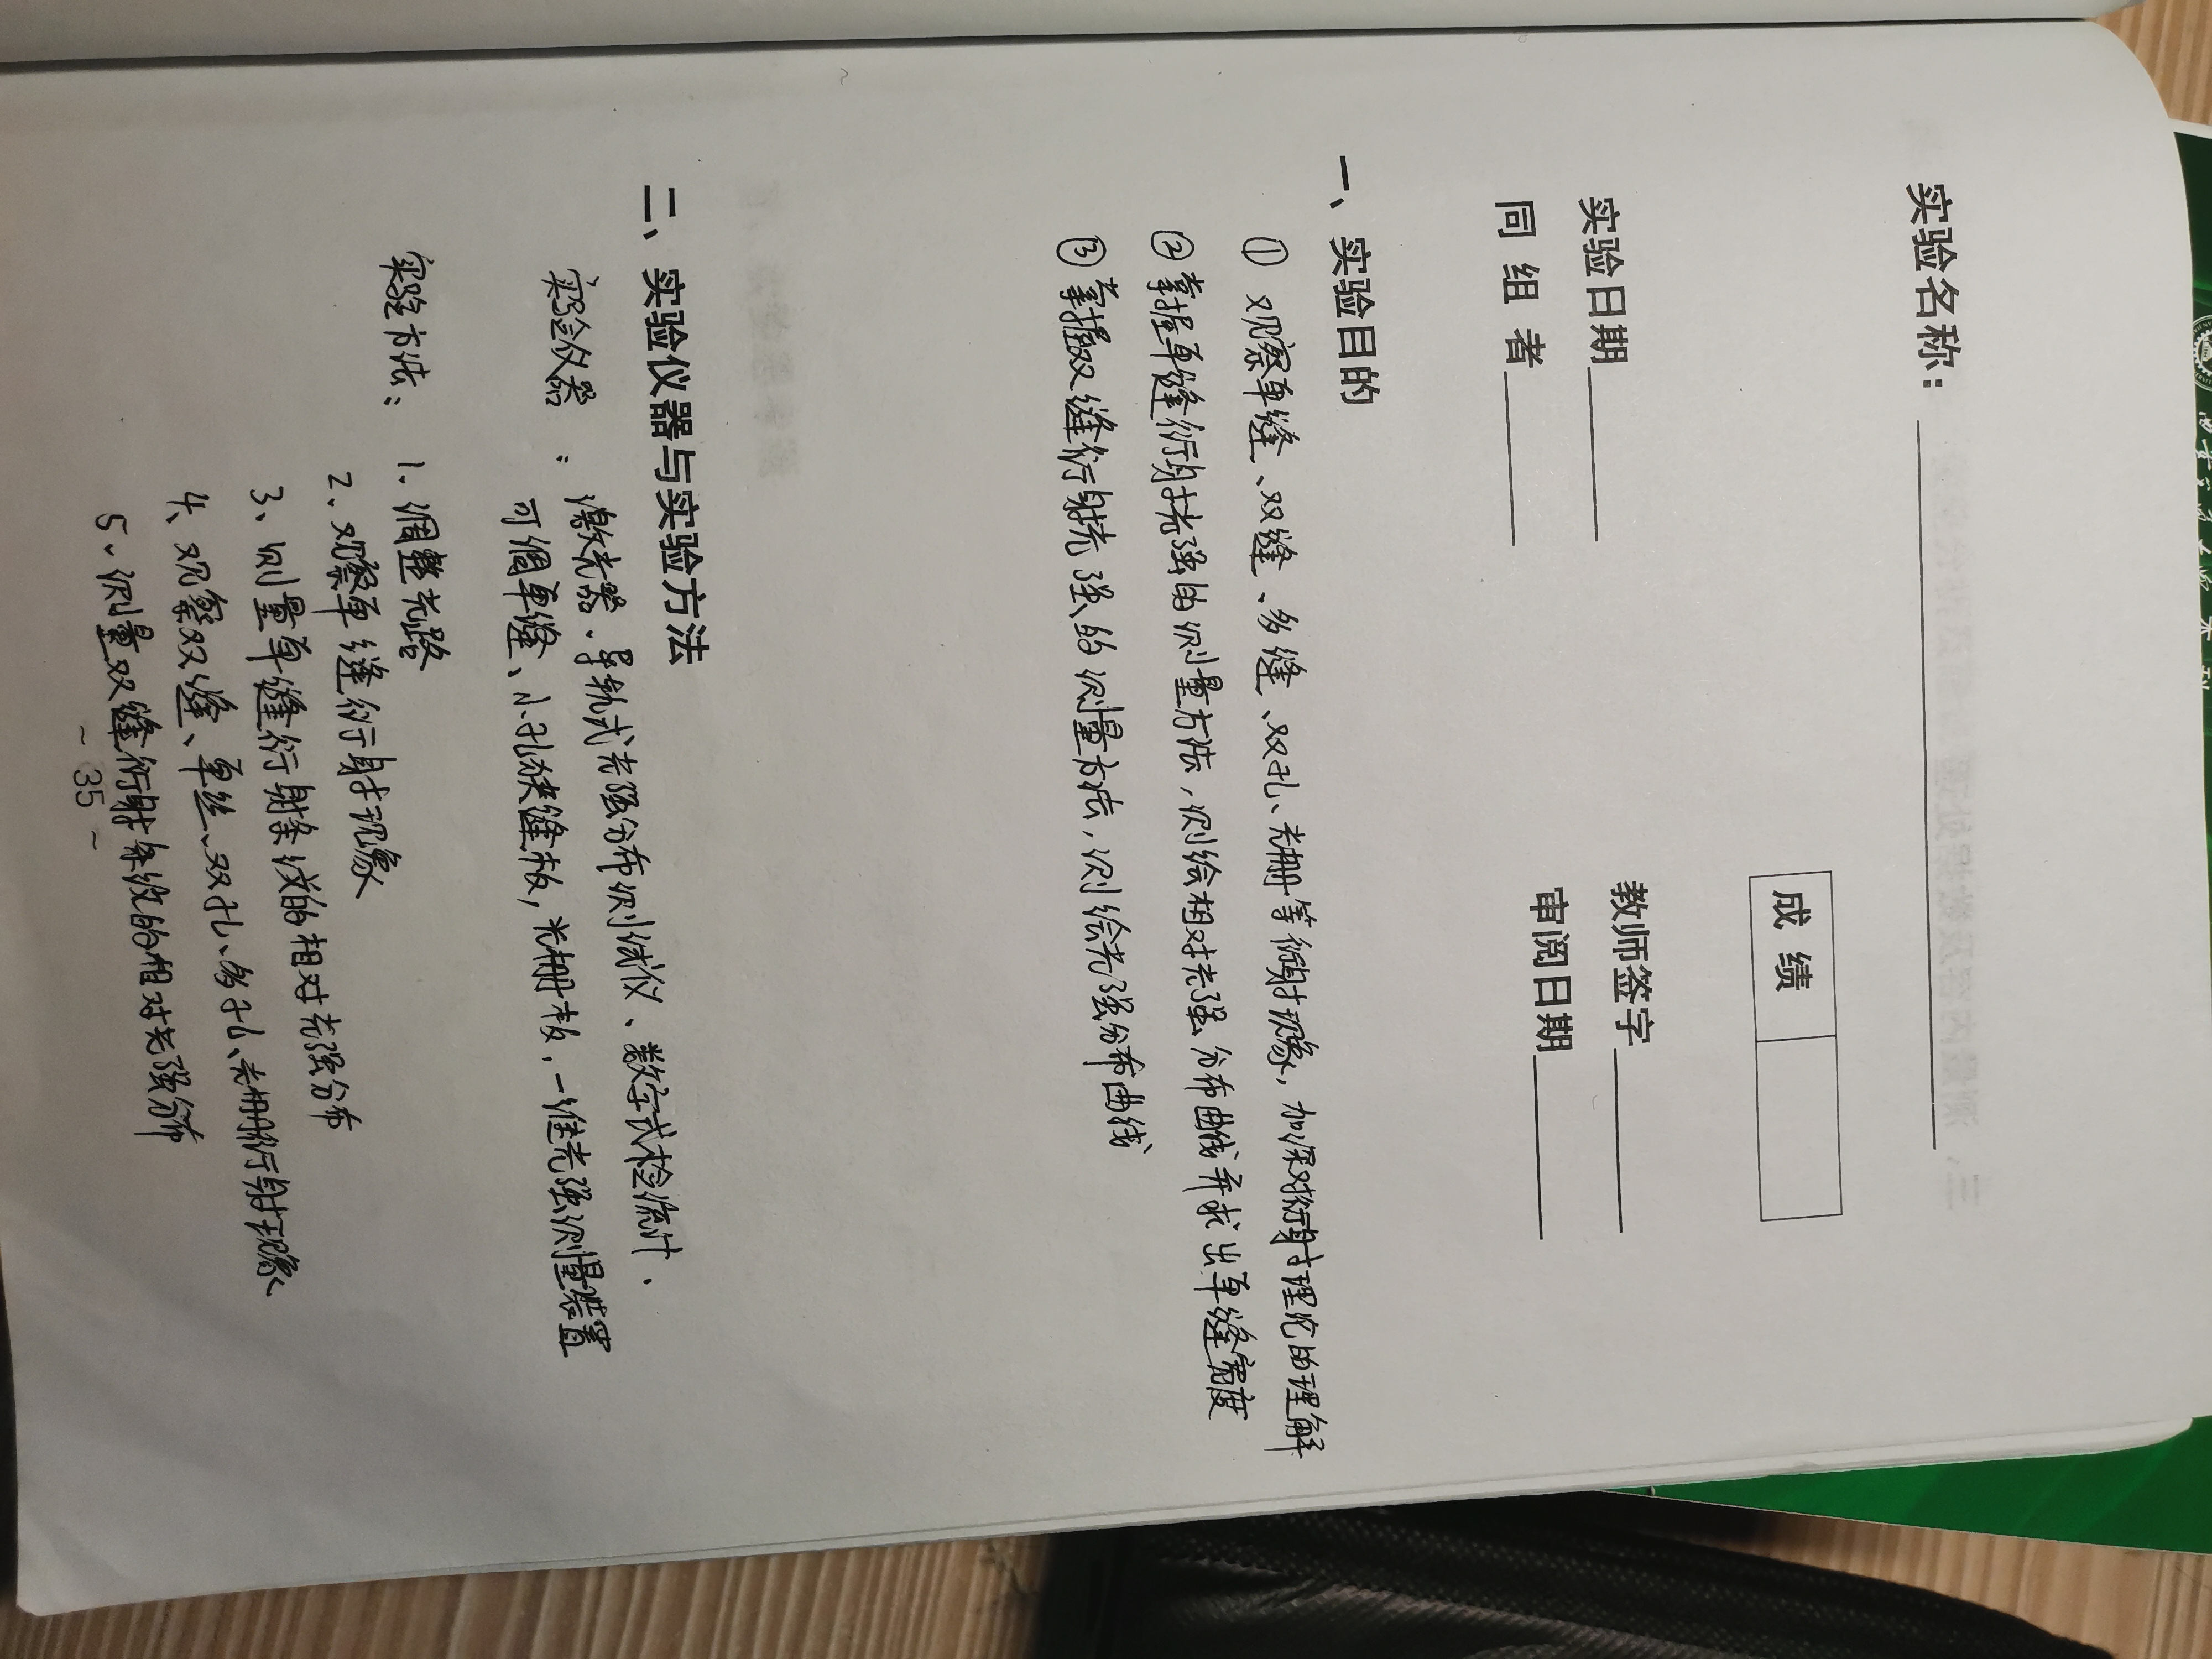 实验名称：
成 绩
实验日期
教师签字
同 组 者
审阅日期
一、实验目的
① 观察单缝、双缝、多缝、双孔、光栅等衍射现象，加深对衍射理论的理解
② 掌握单缝衍射光强的测量方法，测绘相对光强分布曲线并求出单缝宽度
③ 掌握双缝衍射光强的测量方法，测绘光强分布曲线
二、实验仪器与实验方法
实验仪器：激光器、导轨式光强分布测试仪、数字式检流计、
可调单缝、小孔狭缝板，光栅板，一维光强测量装置
实验方法：1、调整光路
2、观察单缝衍射现象
3、测量单缝衍射条纹的相对光强分布
4、观察双缝、单丝、双孔、多孔、光栅衍射现象
5、测量双缝衍射条纹的相对光强分布
~ 35 ~